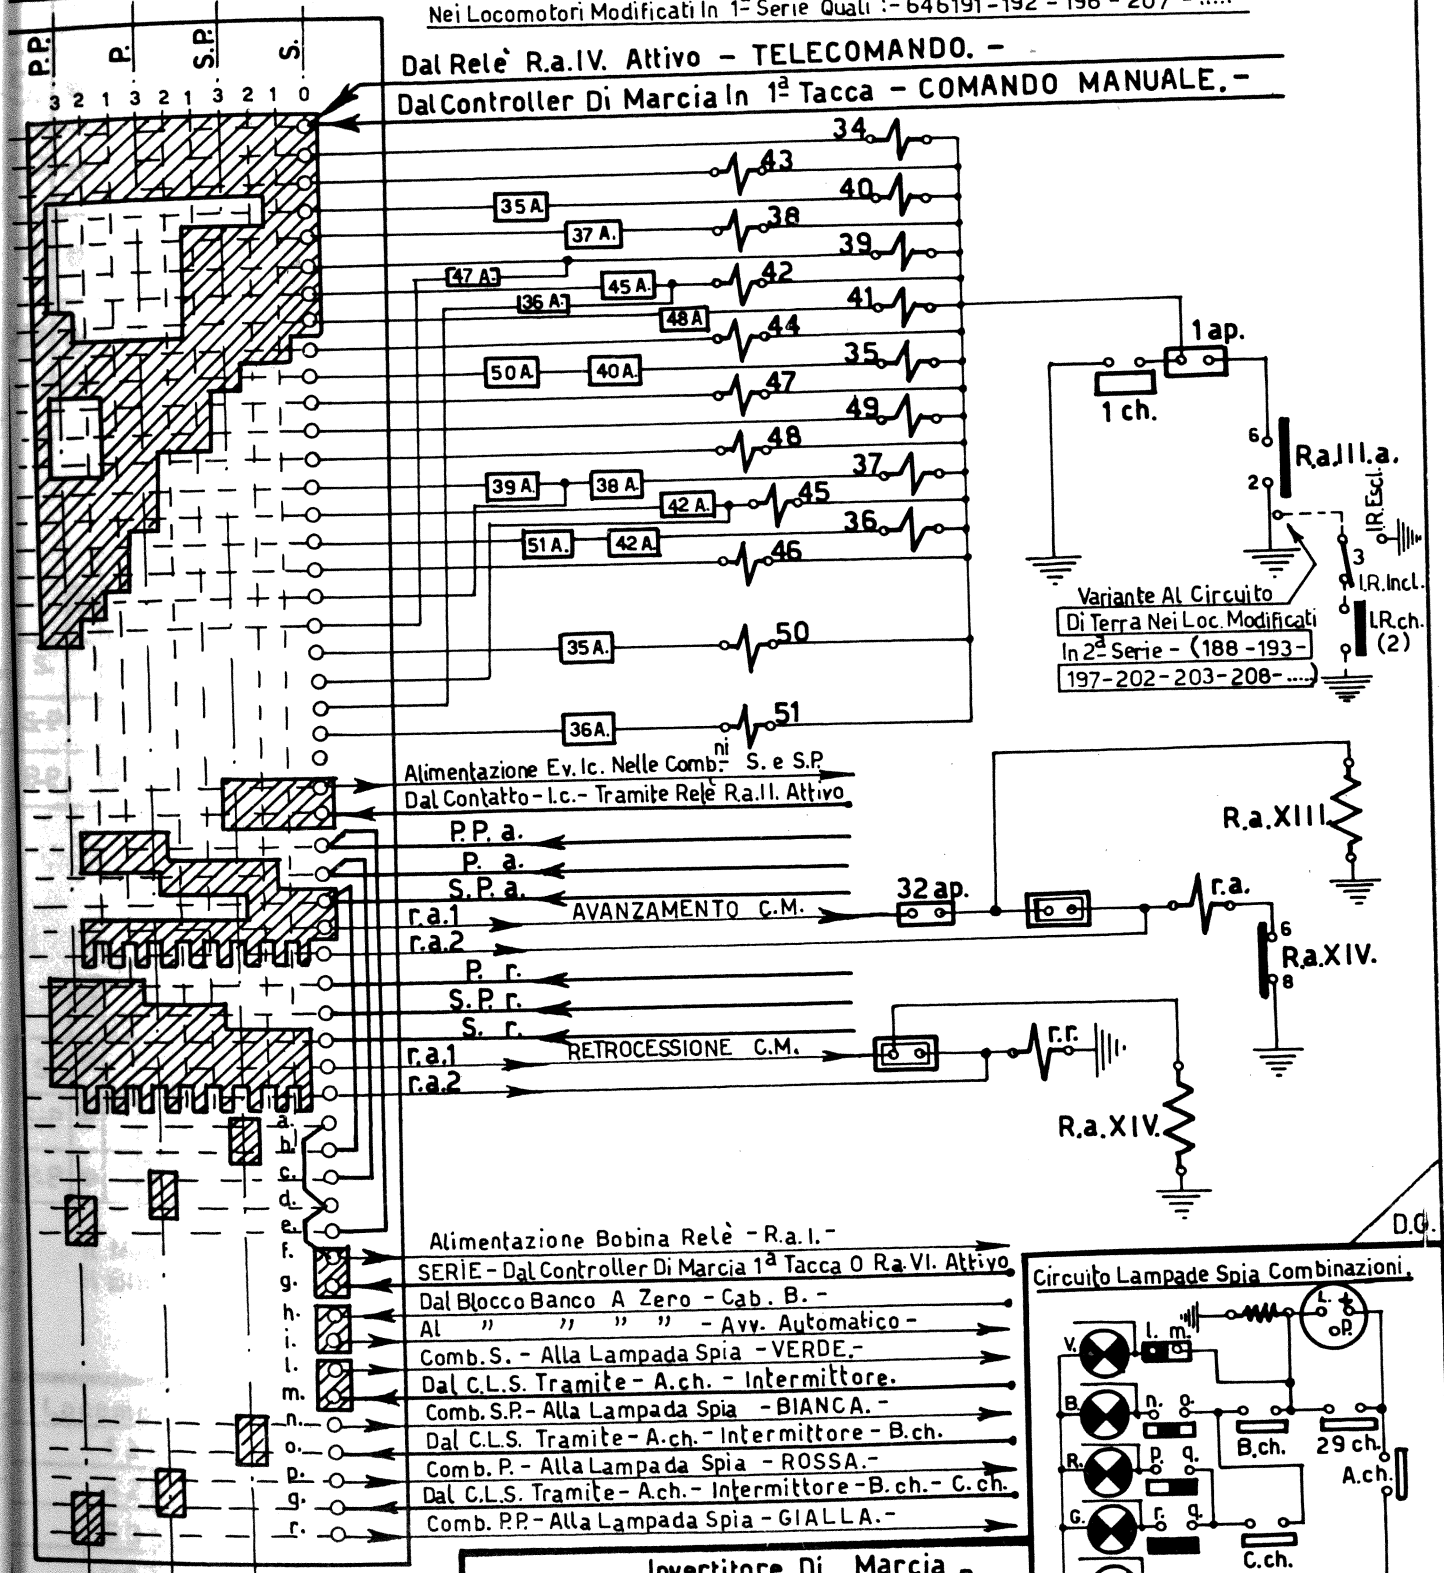 Nei Locomotori Modificati In 1ª Serie Quali :- 646191-192-196-207-.....
Dal Relè R.a.IV. Attivo - TELECOMANDO. -
Dal Controller Di Marcia In 1ª Tacca - COMANDO MANUALE. -
P.P. P. S.P. S.
3 2 1 3 2 1 3 2 1 0
34
43
40
35 A.
38
37 A.
39
47 A.
42
45 A.
36 A.
41
48 A
44
35
50 A.
40 A.
47
49
48
37
39 A.
38 A.
45
42 A.
36
51 A.
42 A
46
50
35 A.
51
36A.
1 ap.
1 ch.
6
2
R.a.III.a.
I.R.Escl.
3
I.R.Incl.
I.R.ch.
(2)
Variante Al Circuito
Di Terra Nei Loc. Modificati
In 2ª Serie - (188-193-
197-202-203-208-.....)
Alimentazione Ev. Ic. Nelle Comb.ni S. e S.P.
Dal Contatto - I.c. - Tramite Relè R.a.II. Attivo
P.P. a.
P. a.
S.P. a.
r.a.1 AVANZAMENTO C.M.
r.a.2
32 ap.
r.a.
R.a.XIII.
6
R.a.XIV.
8
P. r.
S.P. r.
S. r.
r.a.1 RETROCESSIONE C.M.
r.a.2
r.r.
R.a.XIV.
a.
b.
c.
d.
e.
f. Alimentazione Bobina Relè - R.a.I. -
g. SERIE - Dal Controller Di Marcia 1ª Tacca O R.a.VI. Attivo
h. Dal Blocco Banco A Zero - Cab. B. -
i. Al " " " " - Avv. Automatico -
l. Comb. S. - Alla Lampada Spia - VERDE. -
m. Dal C.L.S. Tramite - A.ch. - Intermittore.
n. Comb. S.P. - Alla Lampada Spia - BIANCA. -
o. Dal C.L.S. Tramite - A.ch. - Intermittore - B.ch.
p. Comb. P. - Alla Lampada Spia - ROSSA. -
q. Dal C.L.S. Tramite - A.ch. - Intermittore - B.ch. - C.ch.
r. Comb. P.P. - Alla Lampada Spia - GIALLA. -
D.O.
Circuito Lampade Spia Combinazioni.
L. +
P.
V. l. m.
B. n. o.
B.ch. 29 ch.
R. p. q.
A.ch.
G. r. q.
C.ch.
Invertitore Di Marcia -